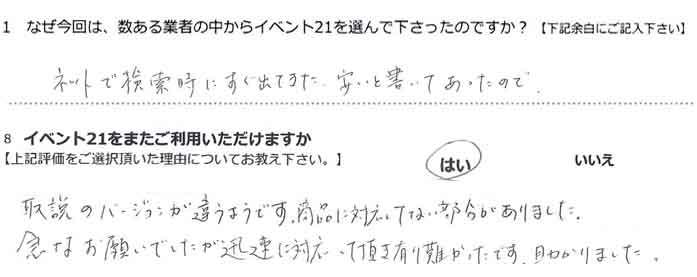 1 なぜ今回は、数ある業者の中からイベント21を選んで下さったのですか？【下記余白にご記入下さい】
ネットで検索時にすぐ出てきた。安いと書いてあったので。
8 イベント21をまたご利用いただけますか
【上記評価をご選択頂いた理由についてお教え下さい。】 はい いいえ
取説のバージョンが違うようです。商品に対応してない部分がありました。
急なお願いでしたが迅速に対応して頂き有り難かったです。助かりました。